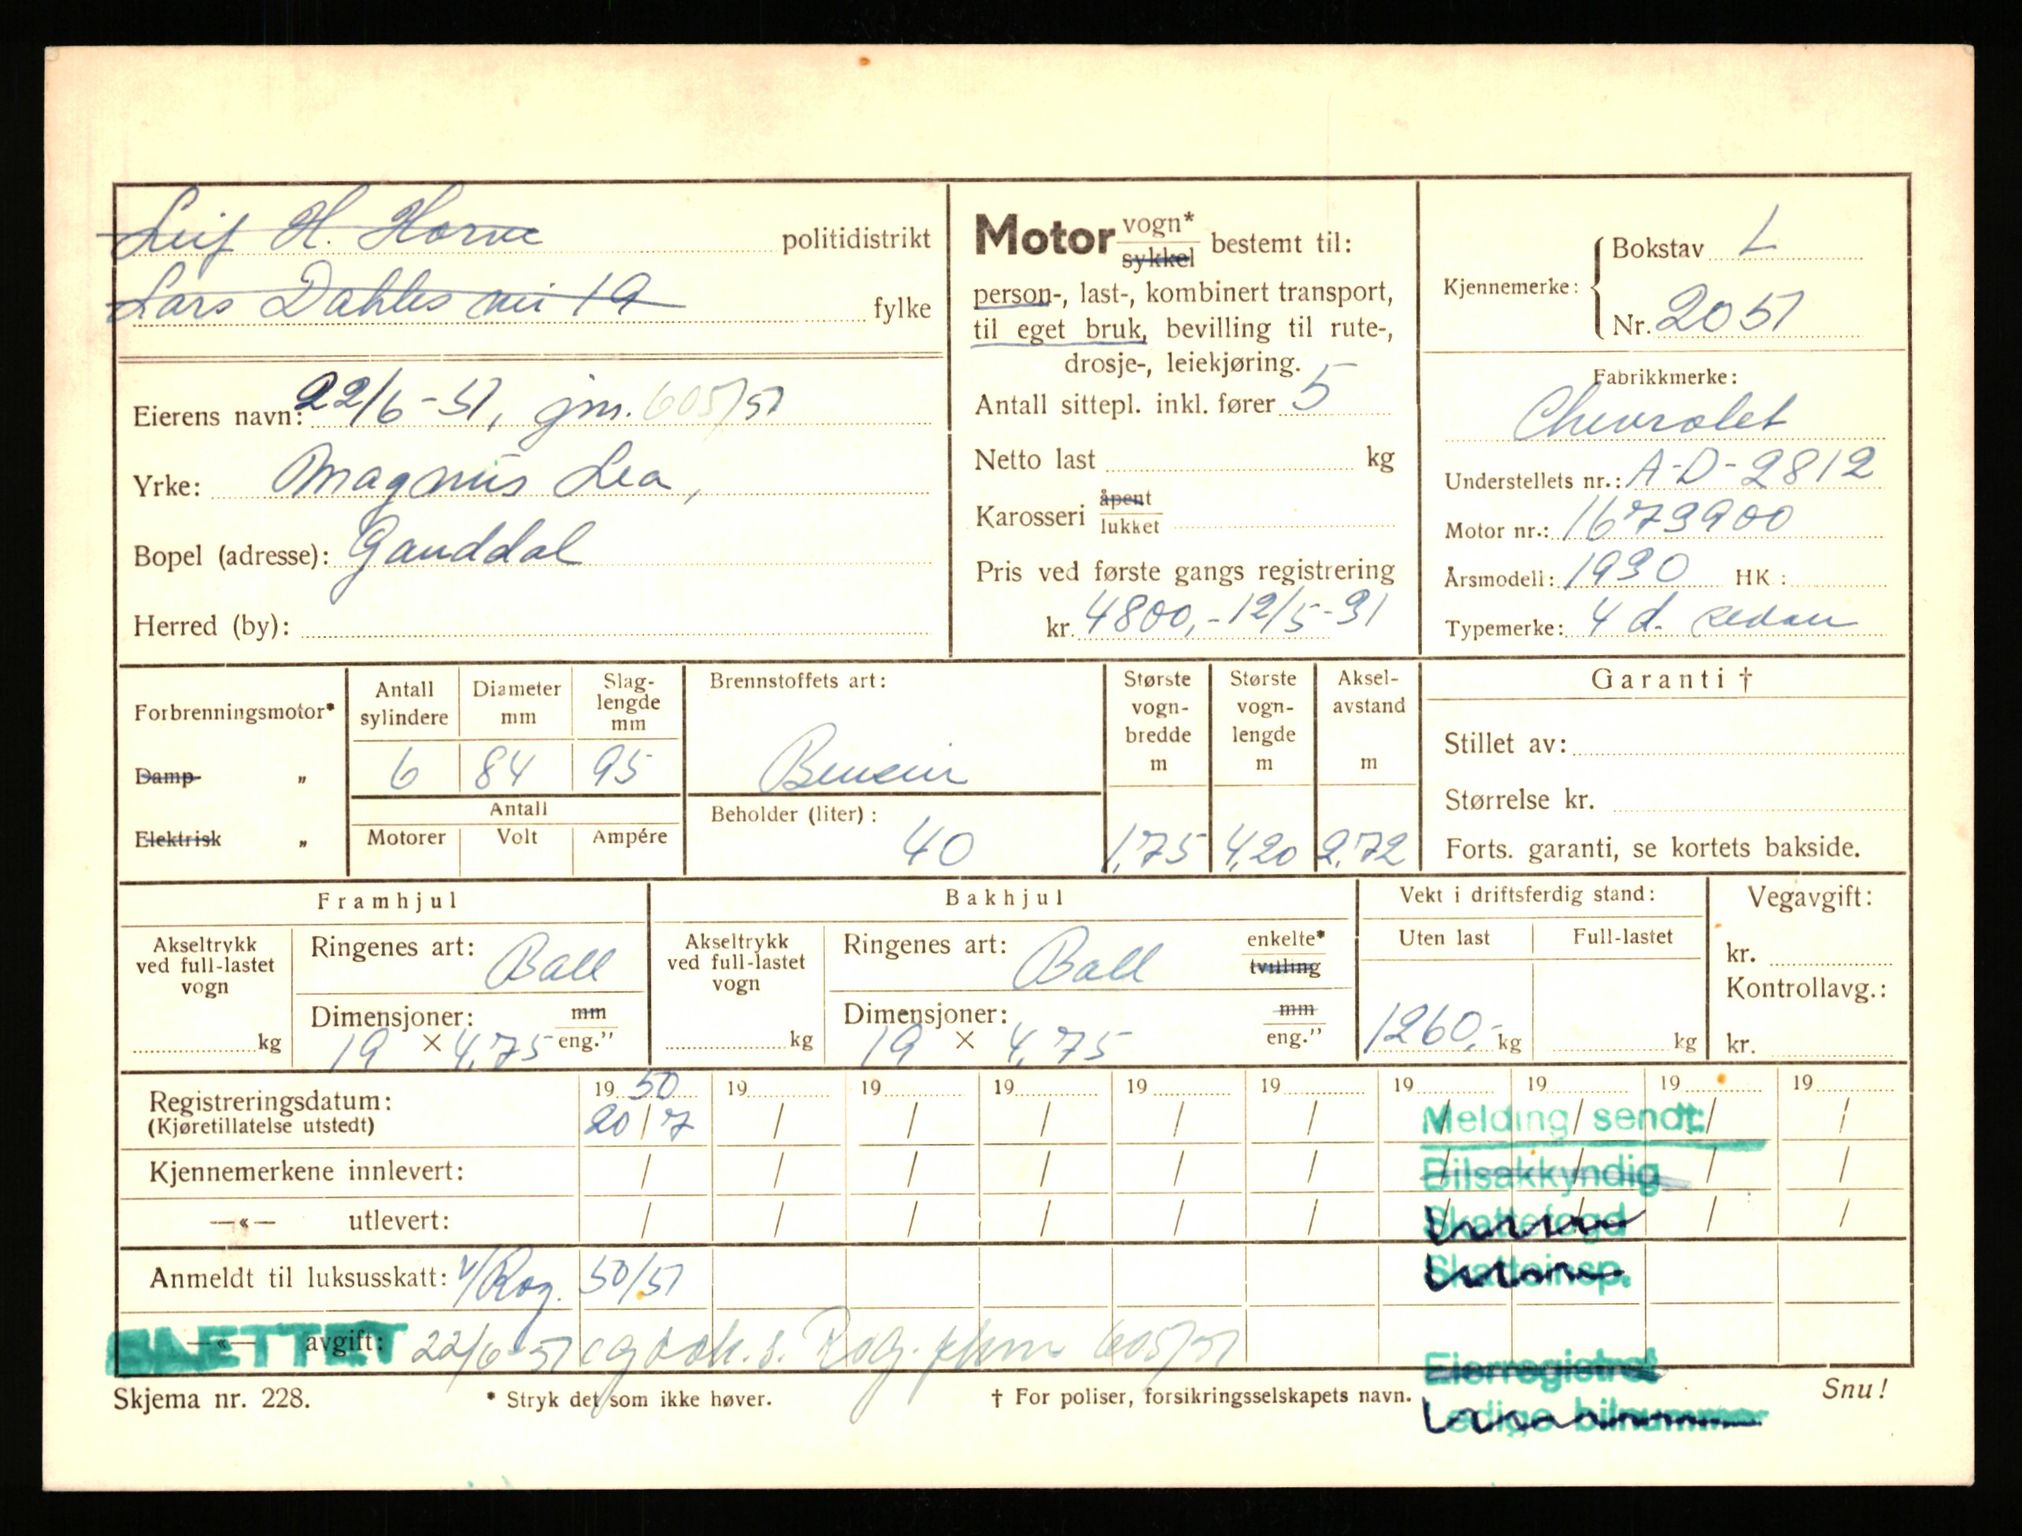 Leif H. Horne politidistrikt
Lars Dahles vei 19 fylke
Eierens navn: 22/6-51, jnr. 605/51
Yrke: Magnus Lea,
Bopel (adresse): Ganddal
Herred (by):
Motor vogn* sykkel bestemt til:
person-, last-, kombinert transport,
til eget bruk, bevilling til rute-,
drosje-, leiekjøring.
Antall sittepl. inkl. fører 5
Netto last kg
Karosseri åpent lukket
Pris ved første gangs registrering
kr. 4800,- 12/5-31
Kjennemerke: Bokstav L
Nr. 2051
Fabrikkmerke:
Chevrolet
Understellets nr.: A-D-2812
Motor nr.: 1673900
Årsmodell: 1930 HK:
Typemerke: 4 d. sedan
Forbrenningsmotor*
Damp „
Elektrisk „
Antall sylindere 6
Diameter mm 84
Slag-lengde mm 95
Antall
Motorer Volt Ampére
Brennstoffets art:
Bensin
Beholder (liter):
40
Største vogn-bredde m 1,75
Største vogn-lengde m 4,20
Aksel-avstand m 2,72
Garanti †
Stillet av:
Størrelse kr.
Forts. garanti, se kortets bakside.
Framhjul
Akseltrykk ved full-lastet vogn kg
Ringenes art: Ball
Dimensjoner: mm eng."
19 × 4,75
Bakhjul
Akseltrykk ved full-lastet vogn kg
Ringenes art: Ball enkelte* tvilling
Dimensjoner: mm eng."
19 × 4,75
Vekt i driftsferdig stand:
Uten last Full-lastet
1260,- kg kg
Vegavgift:
kr.
Kontrollavg.:
kr.
19 50 19 19 19 19 19 19 19 19 19
Registreringsdatum:
(Kjøretillatelse utstedt) 20/7 / / / / / / / / /
Kjennemerkene innlevert: / / / / / / / / / /
—«— utlevert: / / / / / / / / / /
Anmeldt til luksusskatt: v/Rog. 50/51
—«— avgift: 22/6-51
SLETTET
Melding sendt:
Bilsakkyndig
Skattefogd
Skatteinsp.
Eierregistret
Ledige bilnummer
Skjema nr. 228.
* Stryk det som ikke høver.
† For poliser, forsikringsselskapets navn.
Snu!